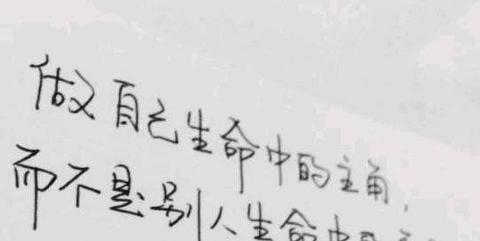 做自己生命中的主角,
而不是别人生命中